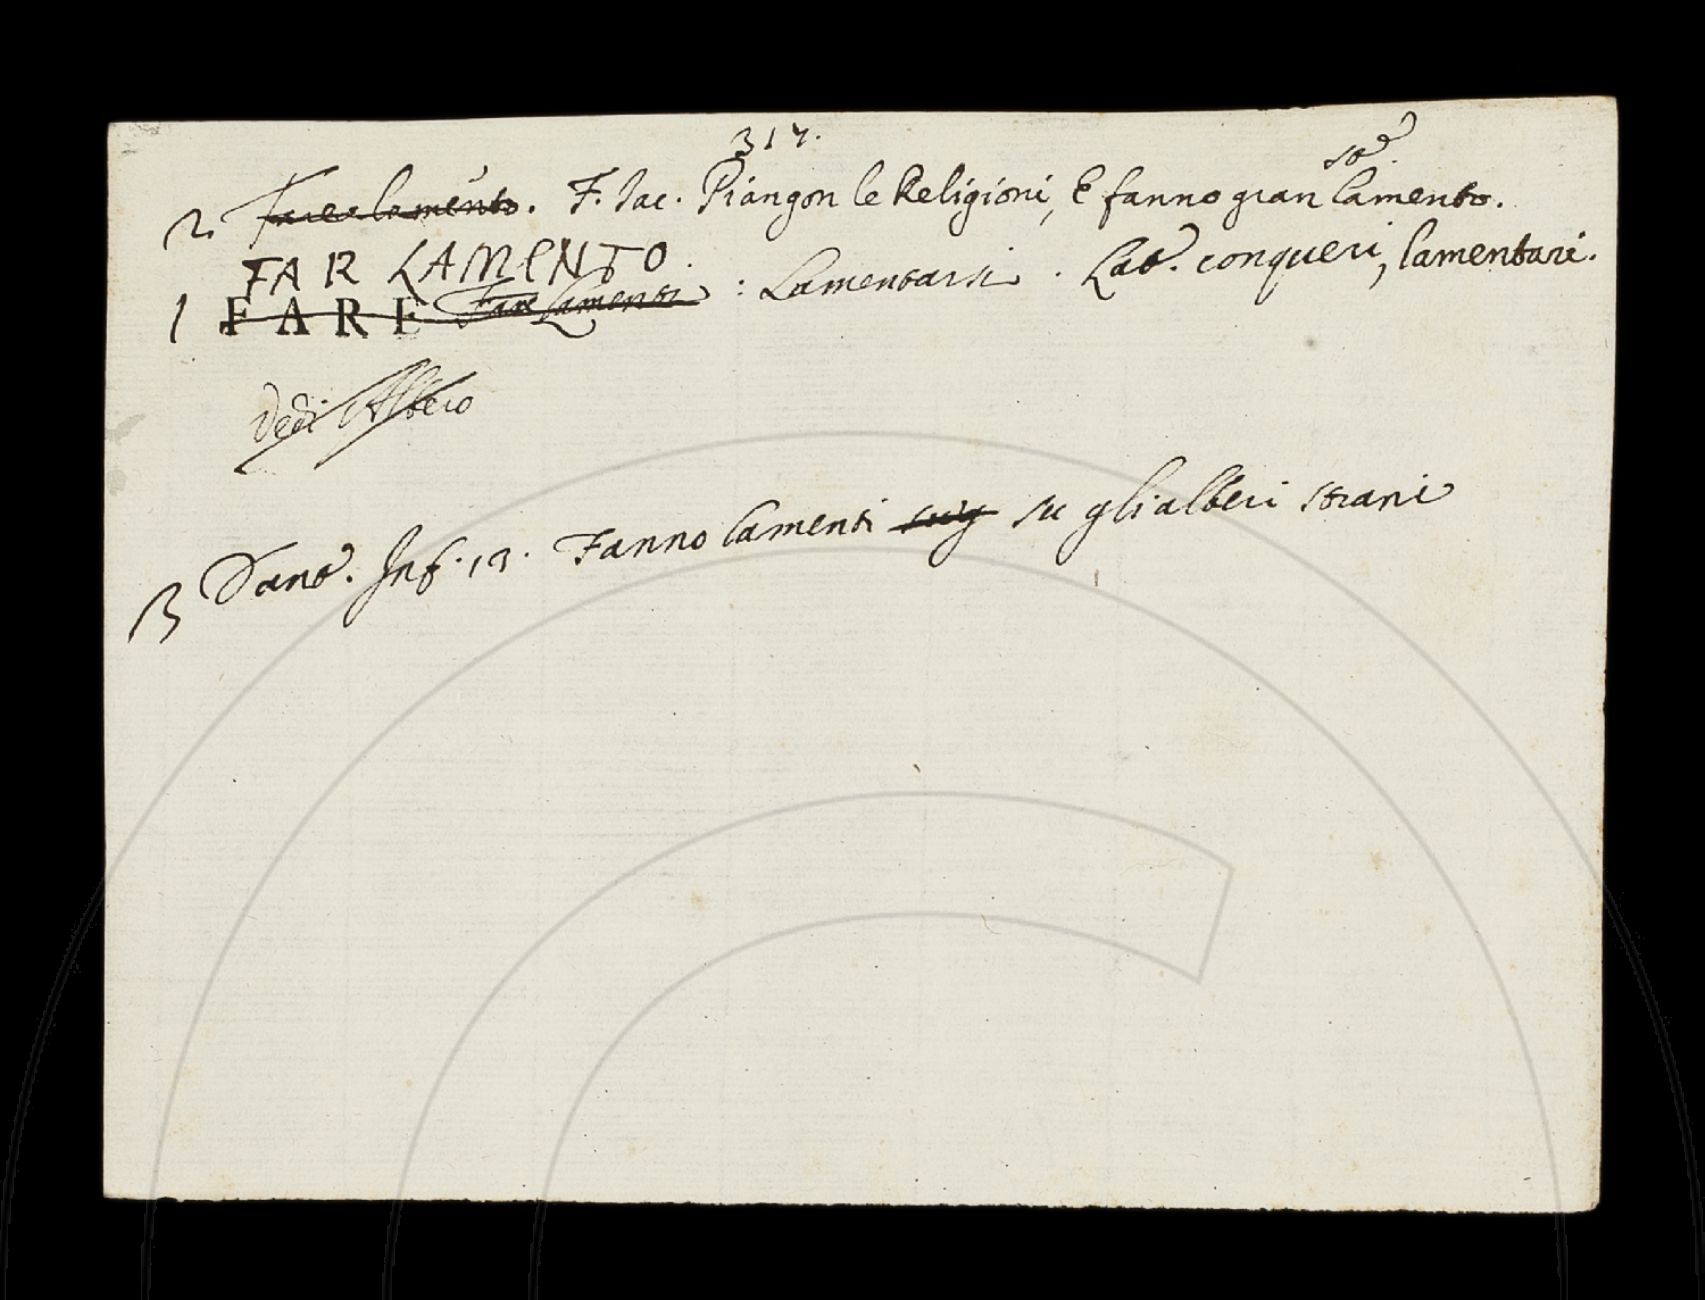 317.
to.
2. Fare lamento. F. Iac. Piangon le Religioni, E fanno gran lamento.
FAR LAMENTO.
1 FARE Fare Lamenti : Lamentarsi. Lat. conqueri, lamentari.
Vedi Albero
3 Dant. Inf. 13. Fanno lamenti sug su gli alberi strani